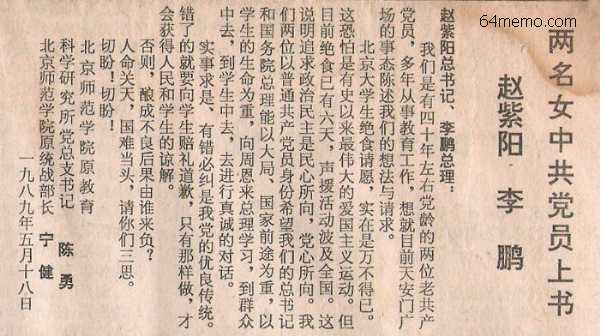 64memo.com
两名女中共党员上书
赵紫阳 李鹏
赵紫阳总书记、李鹏总理：
我们是有四十年左右党龄的两位老共产
党员，多年从事教育工作，想就目前天安门广
场的事态陈述我们的想法与请求。
北京大学生绝食请愿，实在是万不得已。
这恐怕是有史以来最伟大的爱国主义运动。但
目前绝食已有六天，声援活动波及全国。这
说明追求政治民主是民心所向，党心所向。我
们两位以普通共产党员身份希望我们的总书记
和国务院总理能以大局、国家前途为重，以
学生的生命为重，向周恩来总理学习，到群众
中去，到学生中去，去进行真诚的对话。
实事求是、有错必纠是我党的优良传统。
错了的就要向学生赔礼道歉，只有那样做，才
会获得人民和学生的谅解。
否则，酿成不良后果由谁来负？
人命关天，国难当头，请你们三思。
切盼！切盼！
北京师范学院原教育
科学研究所党总支书记 陈勇
北京师范学院原统战部长 宁健
一九八九年五月十八日